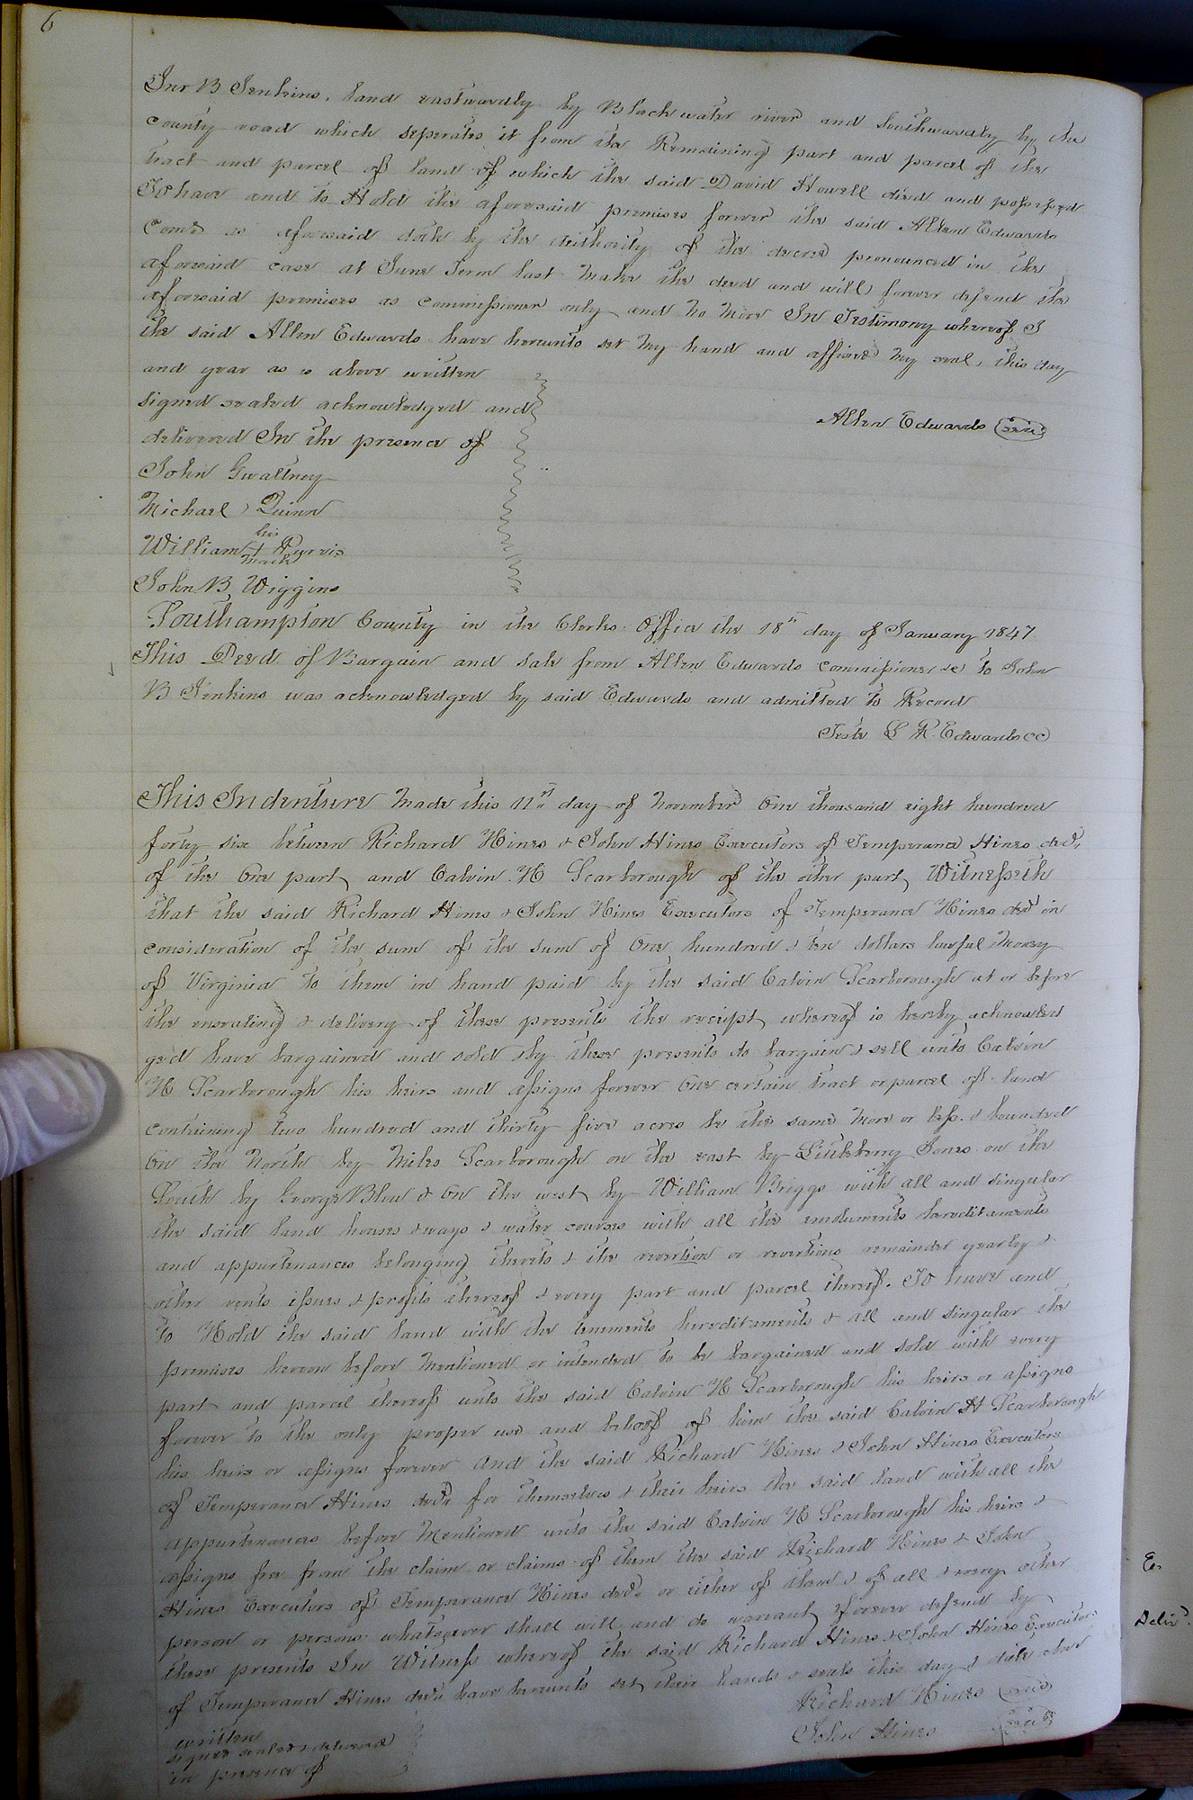 6
Jno B Jenkins, land eastwardly by Blackwater river and Southwardly by the
county road which seperates it from the Remaining part and parcel of the
tract and parcel of land of which the said David Howell died and possessed
To have and to Hold the aforesaid premises forever the said Allen Edwards
Comr as aforesaid doth by the authority of the decree pronounced in the
aforesaid case at June Term last make the deed and will forever defend the
aforesaid premises as commissioner only and no more In Testimony whereof I
the said Allen Edwards have hereunto set my hand and affixed my seal, this day
and year as is above written
signed sealed acknowledged and
Allen Edwards seal
delivered In the presence of
John Gwaltney
Michael Quinn
his
William +
mark
John B Wiggins
Southampton County in the Clerks Office the 18th day of January 1847
This Deed of Bargain and sale from Allen Edwards commissioner &c to John
B Jenkins was acknowledged by said Edwards and admitted to Record
Teste L R Edwards CC
This Indenture made this 11th day of November One thousand eight hundred
forty six between Richard Hines & John Hines Executors of Temperance Hines decd,
of the One part, and Calvin H Scarborough of the other part, Witnesseth
that the said Richard Hines & John Hines Executors of Temperance Hines decd in
consideration of the sum of the sum of One hundred & ten dollars lawful money
of Virginia to them in hand paid by the said Calvin Scarborough at or before
the ensealing & delivery of these presents the receipt whereof is hereby acknowled
ged have bargained and sold & by these presents do bargain & sell unto Calvin
H Scarborough his heirs and assigns forever One certain tract or parcel of land
containing two hundred and thirty five acres be the same more or less & bounded
On the North by Miles Scarborough on the east by Jones on the
South by George Blow & On the west by William Briggs with all and singular
the said land houses & ways & water courses with all the emoluments hereditaments
and appurtenances belonging thereto & the revertion or revertions remainder yearly &
other rents issues & profits thereof & every part and parcel thereof. To have and
to Hold the said land with the tenements hereditaments & all and singular the
premises hereon before mentioned or intended to be bargained and sold with every
part and parcel thereof unto the said Calvin H Scarborough his heirs or assigns
forever to the only proper use and behoof of him the said Calvin H Scarborough
his heirs or assigns forever And the said Richard Hines & John Hines Executors
of Temperance Hines decd for themselves & their heirs the said land with all the
appurtenances before mentioned unto the said Calvin H Scarborough his heirs &
assigns free from the claim or claims of them the said Richard Hines & John
Hines Executors of Temperance Hines decd or either of them & of all & every other
person or persons whatsoever shall will and do warrant & forever defend by
these presents In Witness whereof the said Richard Hines & John Hines Executors
of Temperance Hines decd have hereunto set their hands & seals this day & date above
written
Richard Hines seal
signed sealed & delivered
John Hines seal
in presence of
Ex
Delivd